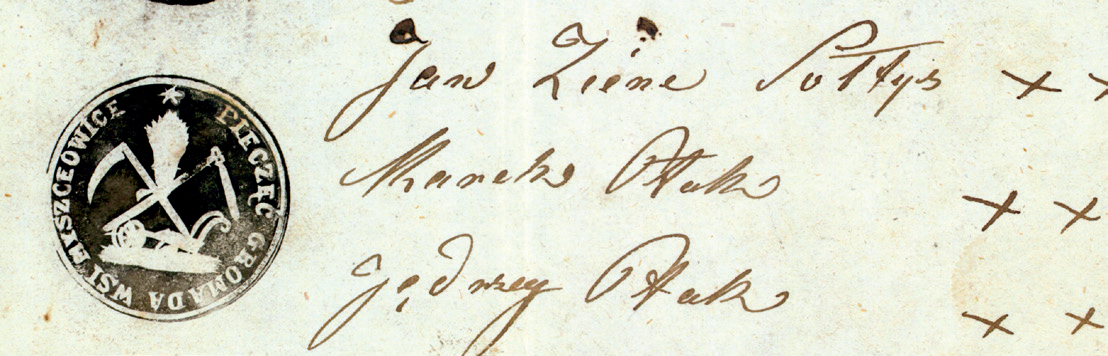 PIECZĘC GROMADA WSI MYSZCEOWICE
Jan Ziene Sołtys ××
Marek Ptak ××
Jędrzey Ptak ××